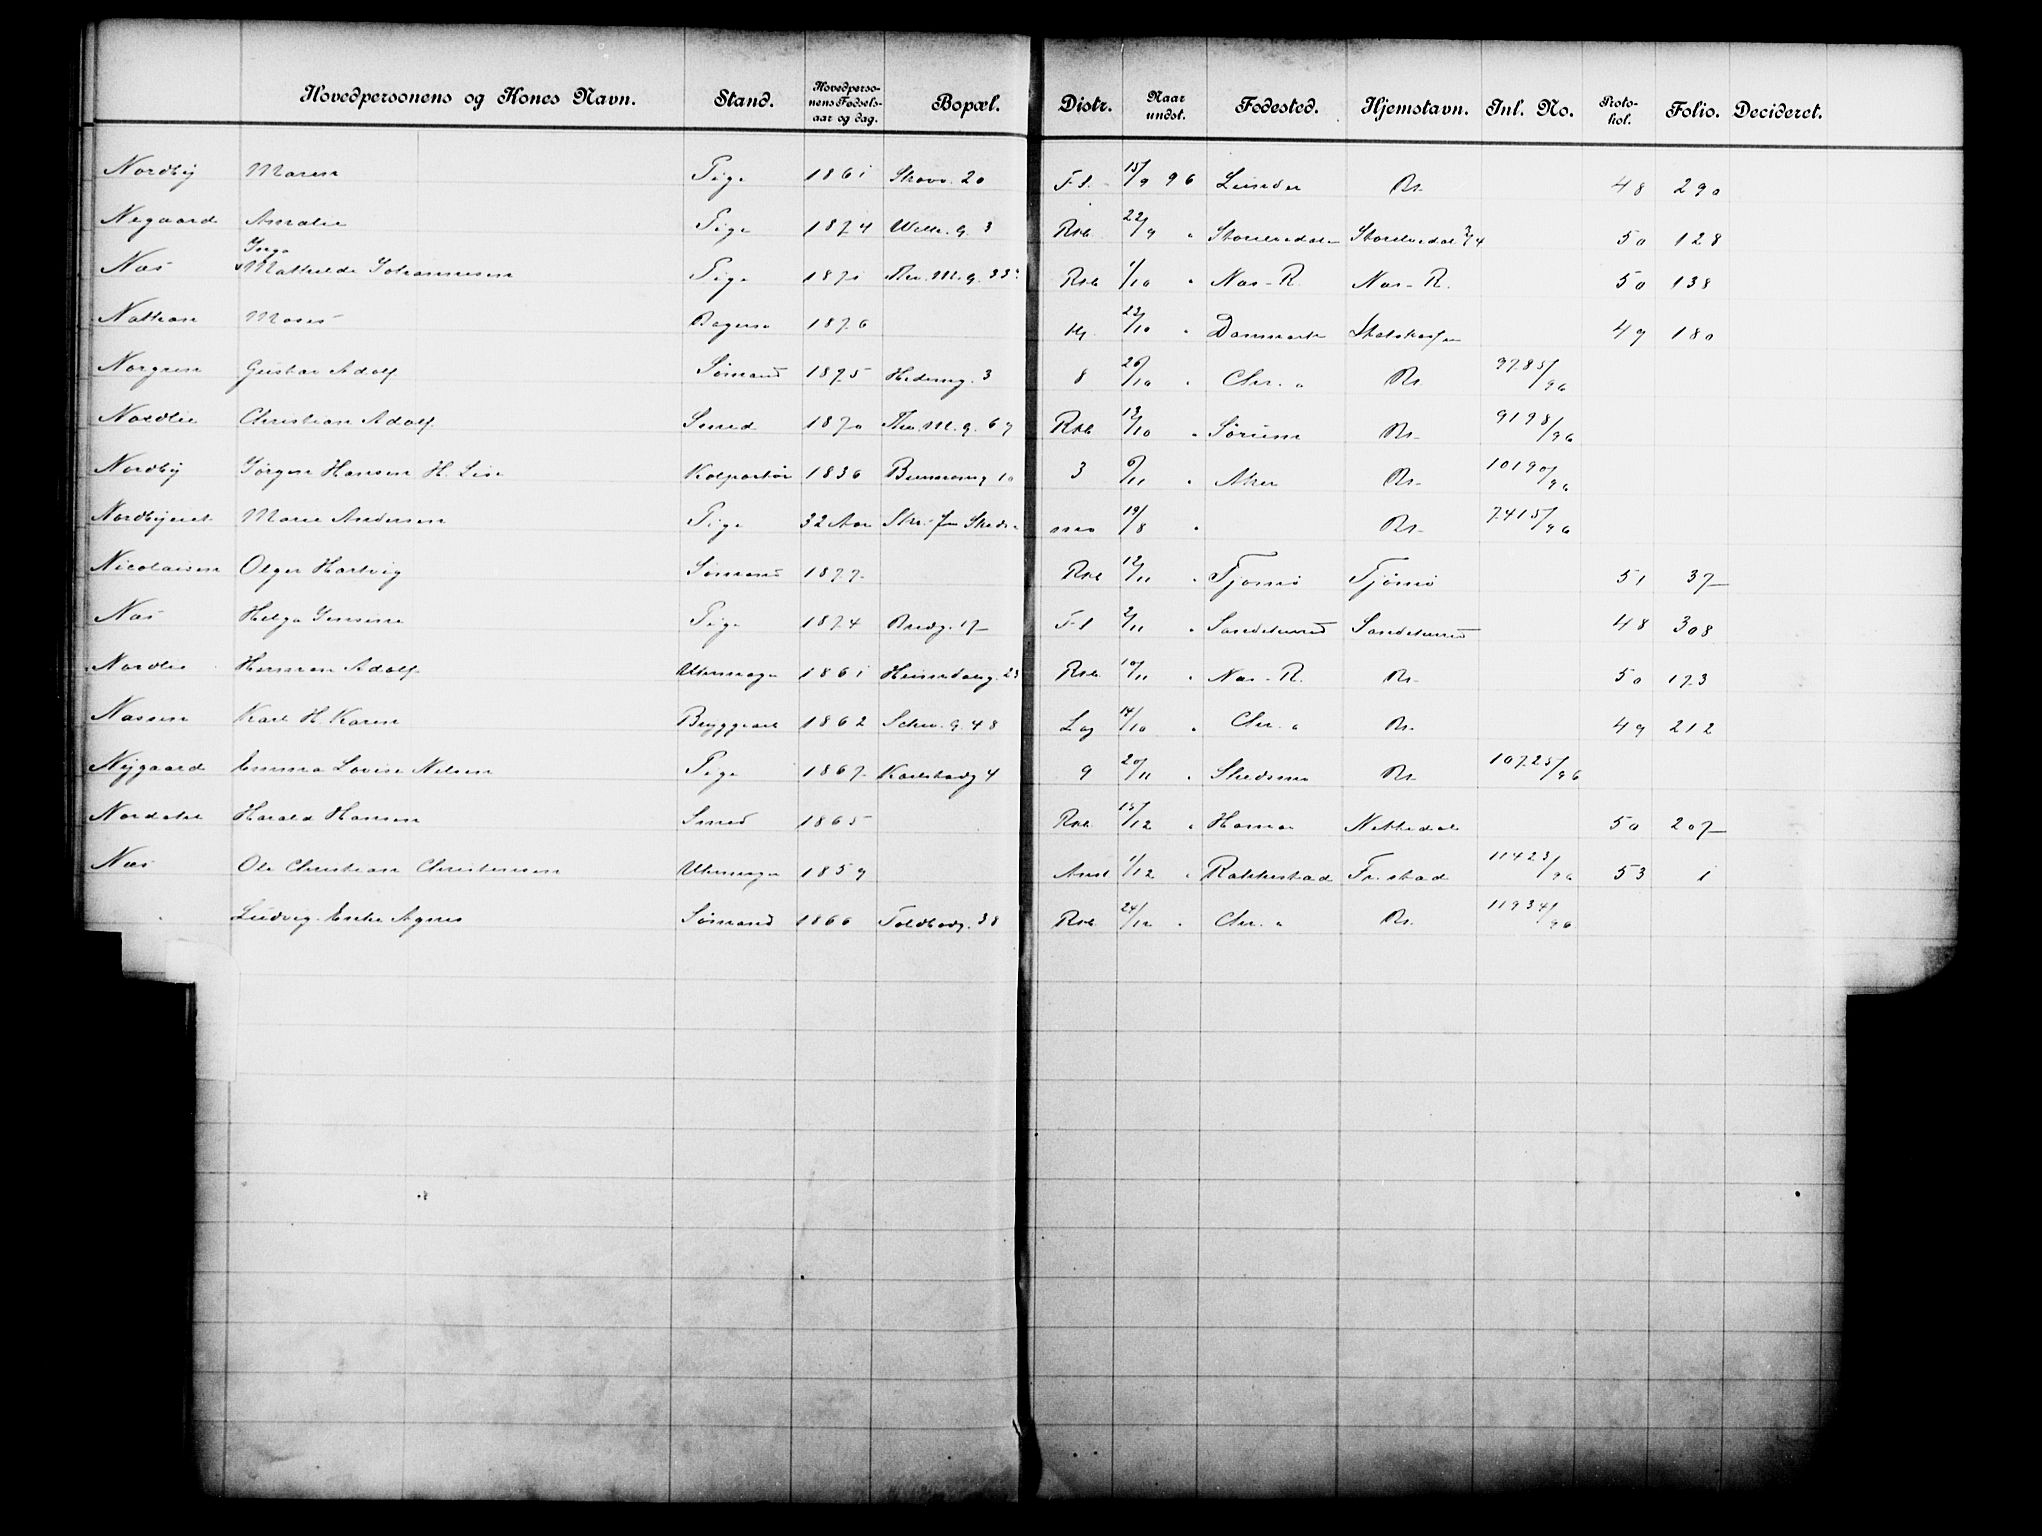 Hovedpersonens og Kones Navn. Stand. Hovedperso-nens Fødsels-aar og dag. Bopæl. Distr. Naar undst. Fødested. Hjemstavn. Inl. No. Proto-kol. Folio. Decideret.
Nordby Maren Pige 1861 Skovv. 20 Fl. 15/9 96 Lunder Br. 48 290
Negaard Amalie Pige 1874 Welh. g. 3 Rsb 22/9 " Storelvedalen Storelvedal 50 128
Næs Inga Mathilde Johannesen Pige 1871 Thv. M. g. 33 Rsb 1/10 " Næs - R. Næs - R. 50 138
Nathan Moses 1876 23/10 " Danmark 49 180
Norgren Gustav Adolf Sømand 1875 Hedemg. 3 8 26/10 " Chr. a Br. 9785/96
Nordlie Christian Adolf Smed 1870 Thv. M. g. 67 Rsb 13/10 " Sørum Br. 9198/96
Nordby Jørgen Hansen H. Lise Kolportør 1836 10 3 6/11 " Aker Br. 10190/96
Marie Andersen Pige 32 Aar 19/8 " Br. 7415/96
Nicolaisen Olger Hartvig Sømand 1877 Rsb 12/11 " Tjømø Tjømø 51 37
Næs Helga Jensine Pige 1874 Bredg. 17 Fl 2/11 " Sandeherred Sandeherred 48 308
Nordlie Herman Adolf Uhrmager 1861 Heimdalsg. 23 Rsb 10/11 " Næs - R. Br. 50 173
Næssen Karl H. Karen Bryggearb 1862 Schw. g. 48 Log 14/10 " Chr. a Br. 49 212
Nygaard Emma Lovise Nilsen Pige 1867 Karlstadg 4 9 20/11 " Skedsmo Br. 10725/96
Nordahl Harald Hansen Smed 1865 Rsb 15/12 " Hamar Nittedal 50 207
Næs Ole Christian Christensen Uhrmager 1859 1/12 " Rakkestad Fr. stad 11423/96 53 1
" Ludvig. Enke Agnes Sømand 1866 Toldbodg. 38 Rsb 24/12 " Chr. a Br. 11934/96